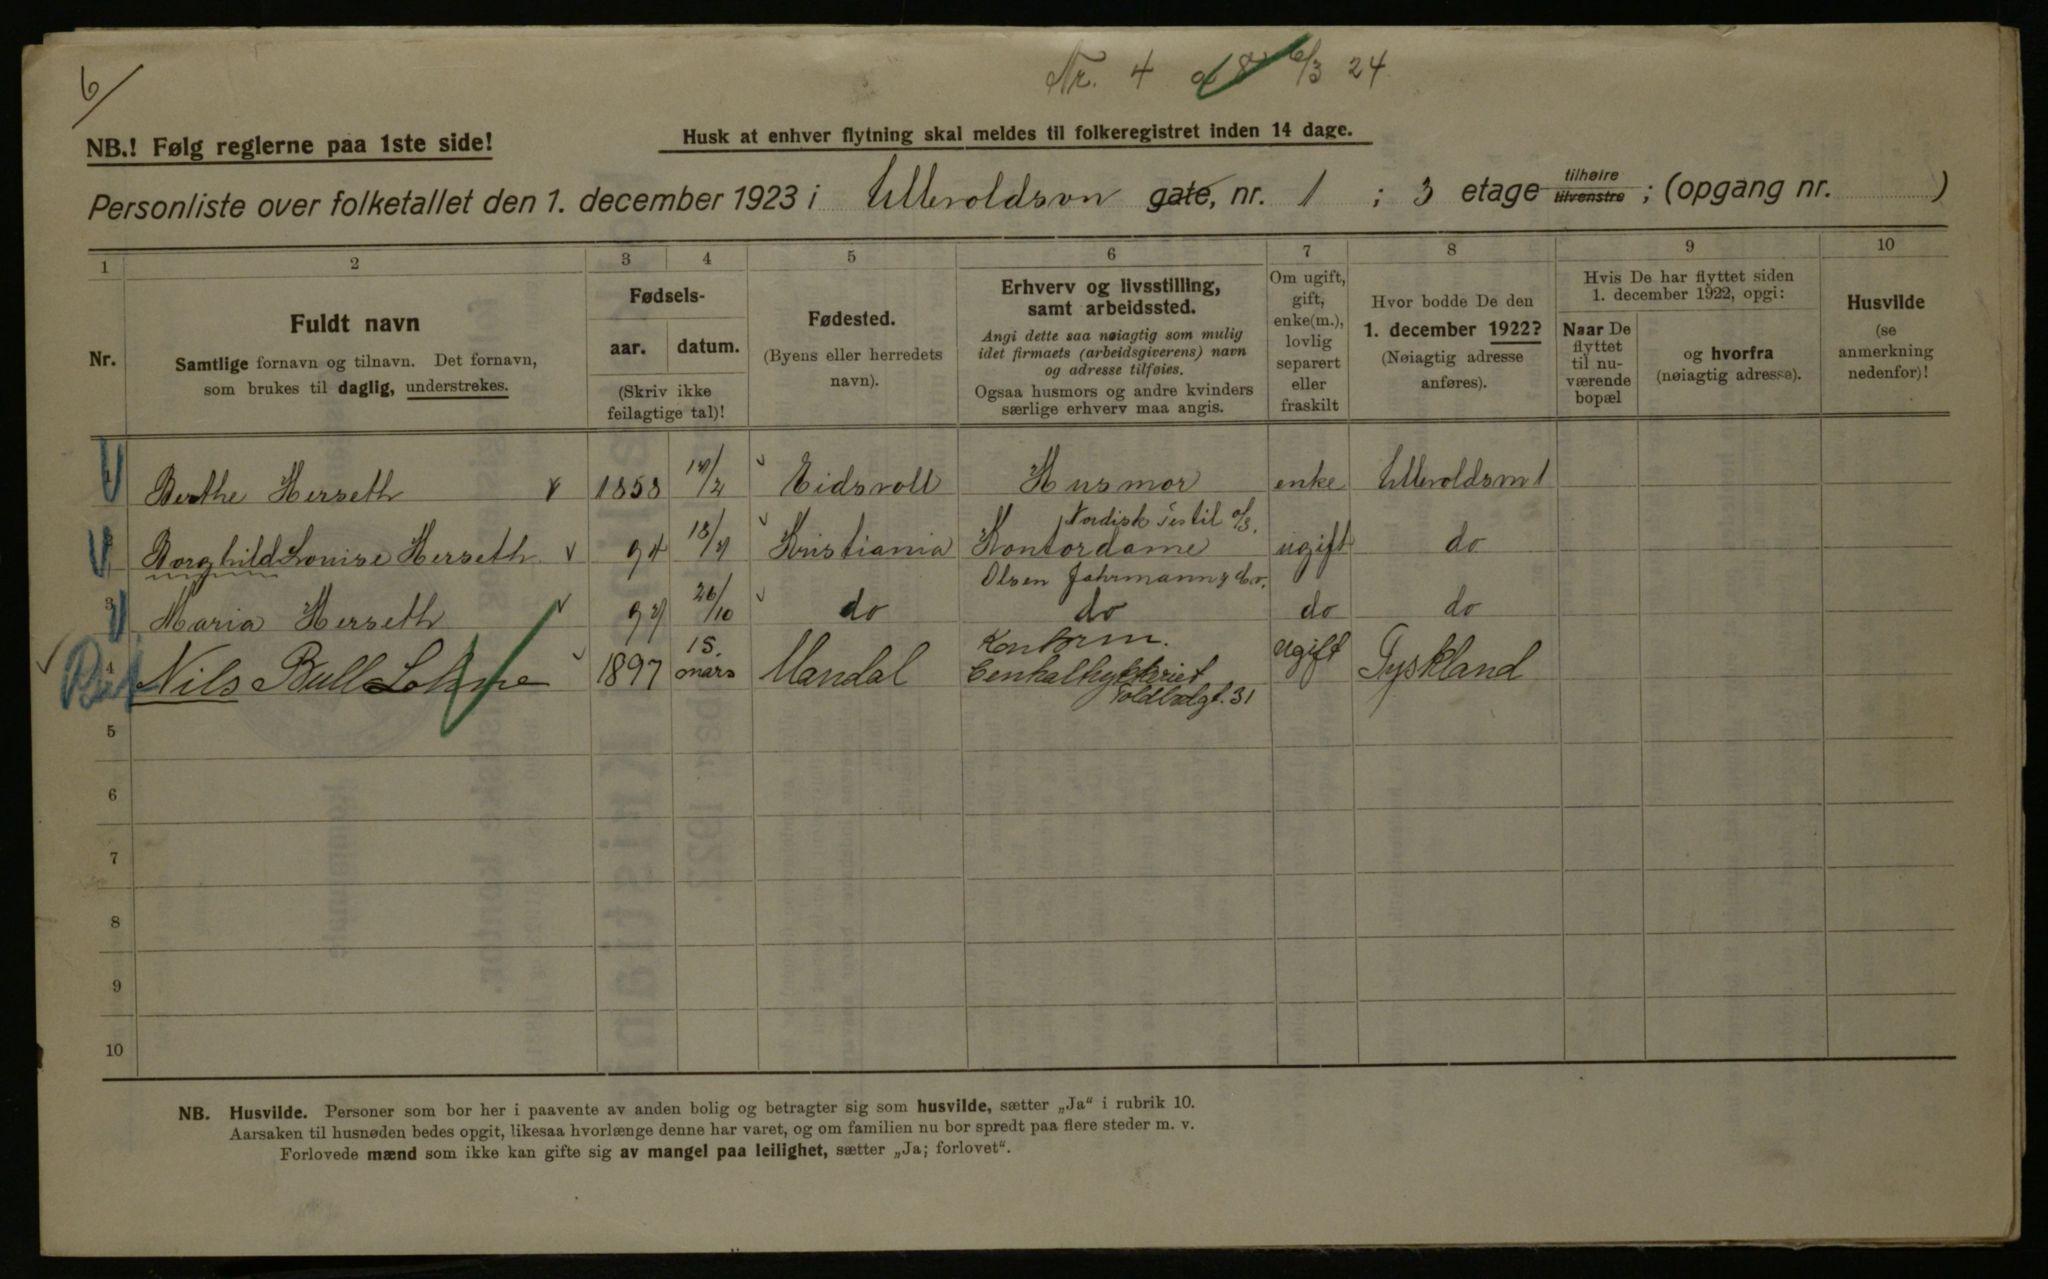 6/
Nr. 4 6/3 24
NB.! Følg reglerne paa 1ste side!
Husk at enhver flytning skal meldes til folkeregistret inden 14 dage.
Personliste over folketallet den 1. december 1923 i Ullevoldsvn gate, nr. 1 ; 3 etage tilhøire tilvenstre ; (opgang nr. )
1 2 3 4 5 6 7 8 9 10
Nr.
Fuldt navn
Samtlige fornavn og tilnavn. Det fornavn,
som brukes til daglig, understrekes.
Fødsels-
aar. datum.
(Skriv ikke
feilagtige tal)!
Fødested.
(Byens eller herredets
navn).
Erhverv og livsstilling,
samt arbeidssted.
Angi dette saa nøiagtig som mulig
idet firmaets (arbeidsgiverens) navn
og adresse tilføies.
Ogsaa husmors og andre kvinders
særlige erhverv maa angis.
Om ugift,
gift,
enke(m.),
lovlig
separert
eller
fraskilt
Hvor bodde De den
1. december 1922?
(Nøiagtig adresse
anføres).
Hvis De har flyttet siden
1. december 1922, opgi:
Naar De
flyttet
til nu-
værende
bopæl
og hvorfra
(nøiagtig adresse).
Husvilde
(se
anmerkning
nedenfor)!
1 Berthe Herseth 1858 Eidsvoll Husmor enke Ullevoldsvn 1
2 Borghild Louise Herseth 94 Kristiania Nordisk Textil a/s. Kontordame ugift do
3 Maria Herseth 97 26/10 do Olsen Jahrmann & Co. do do do
4 Nils Bull Lohne 1897 15. mars Mandal Kontorm. Centraltrykkeriet Toldbodgt. 31 ugift Tyskland
5
6
7
8
9
10
NB. Husvilde. Personer som bor her i paavente av anden bolig og betragter sig som husvilde, sætter „Ja“ i rubrik 10.
Aarsaken til husnøden bedes opgit, likesaa hvorlænge denne har varet, og om familien nu bor spredt paa flere steder m. v.
Forlovede mænd som ikke kan gifte sig av mangel paa leilighet, sætter „Ja; forlovet“.